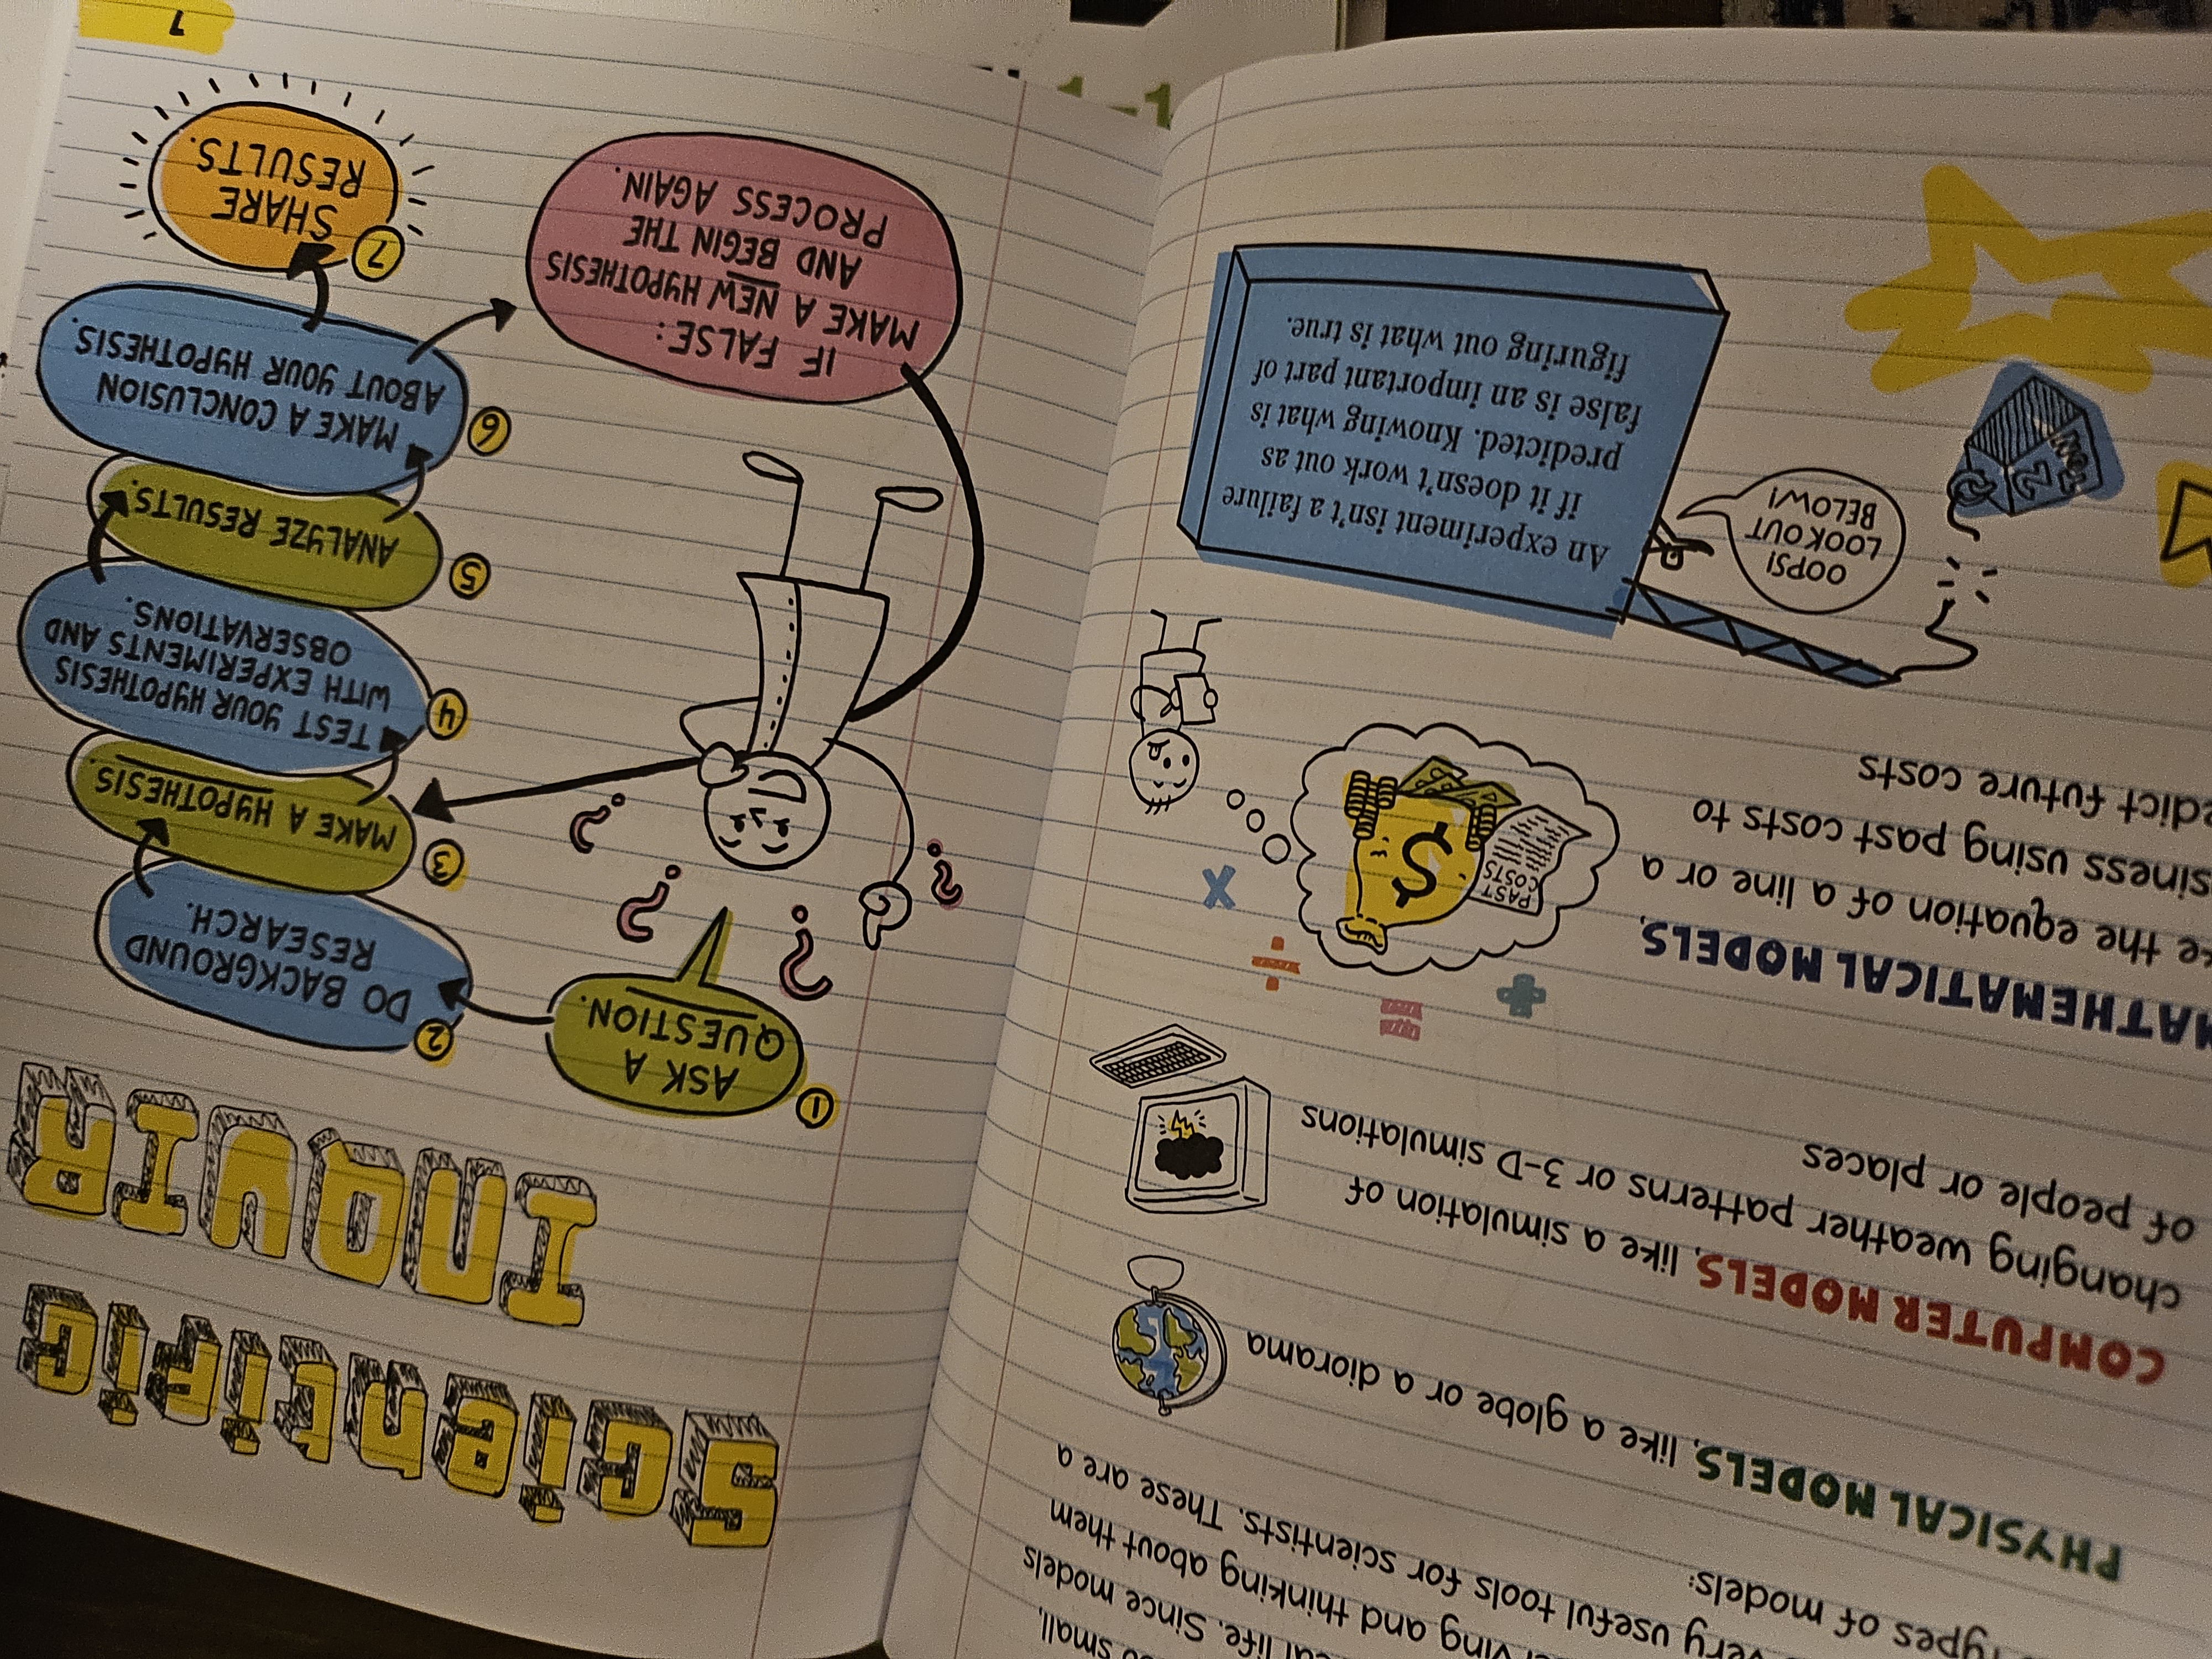 small,
life. Since models
and thinking about them
very useful tools for scientists. These are a
types of models:
PHYSICAL MODELS, like a globe or a diorama
COMPUTER MODELS, like a simulation of
changing weather patterns or 3-D simulations
of people or places
MATHEMATICAL MODELS,
the equation of a line or a
using past costs to
future costs
PAST
COSTS
$
An experiment isn't a failure
if it doesn't work out as
predicted. Knowing what is
false is an important part of
figuring out what is true.
OOPS!
LOOK OUT
BELOW!
2
TON
Scientific
INQUIR
1 ASK A
QUESTION.
2 DO BACKGROUND
RESEARCH.
3 MAKE A HYPOTHESIS.
4 TEST YOUR HYPOTHESIS
WITH EXPERIMENTS AND
OBSERVATIONS.
5 ANALYZE RESULTS.
6 MAKE A CONCLUSION
ABOUT YOUR HYPOTHESIS.
7 SHARE
RESULTS.
IF FALSE:
MAKE A NEW HYPOTHESIS
AND BEGIN THE
PROCESS AGAIN.
? ? ? ?
7